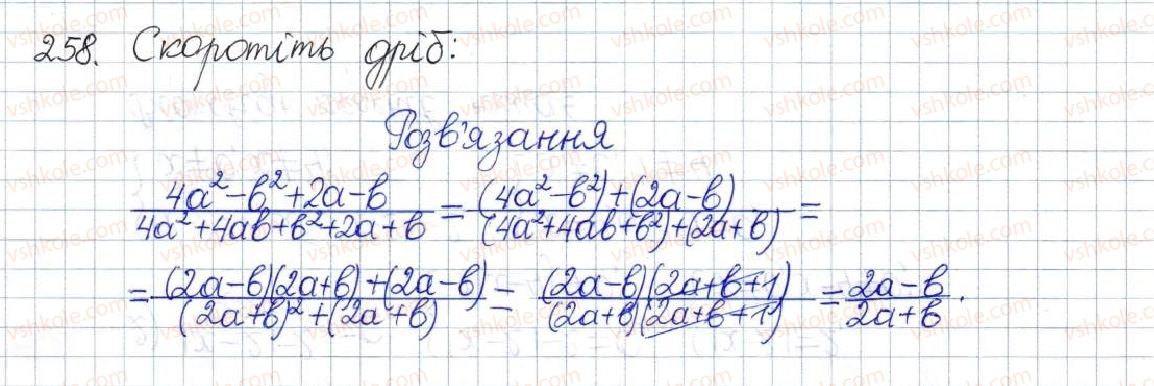 258. Скоротіть дріб:
Розв'язання
(4a²-b²+2a-b)/(4a²+4ab+b²+2a+b) = ((4a²-b²)+(2a-b))/((4a²+4ab+b²)+(2a+b)) =
= ((2a-b)(2a+b)+(2a-b))/((2a+b)²+(2a+b)) = ((2a-b)(2a+b+1))/((2a+b)(2a+b+1)) = (2a-b)/(2a+b).
vshkole.com